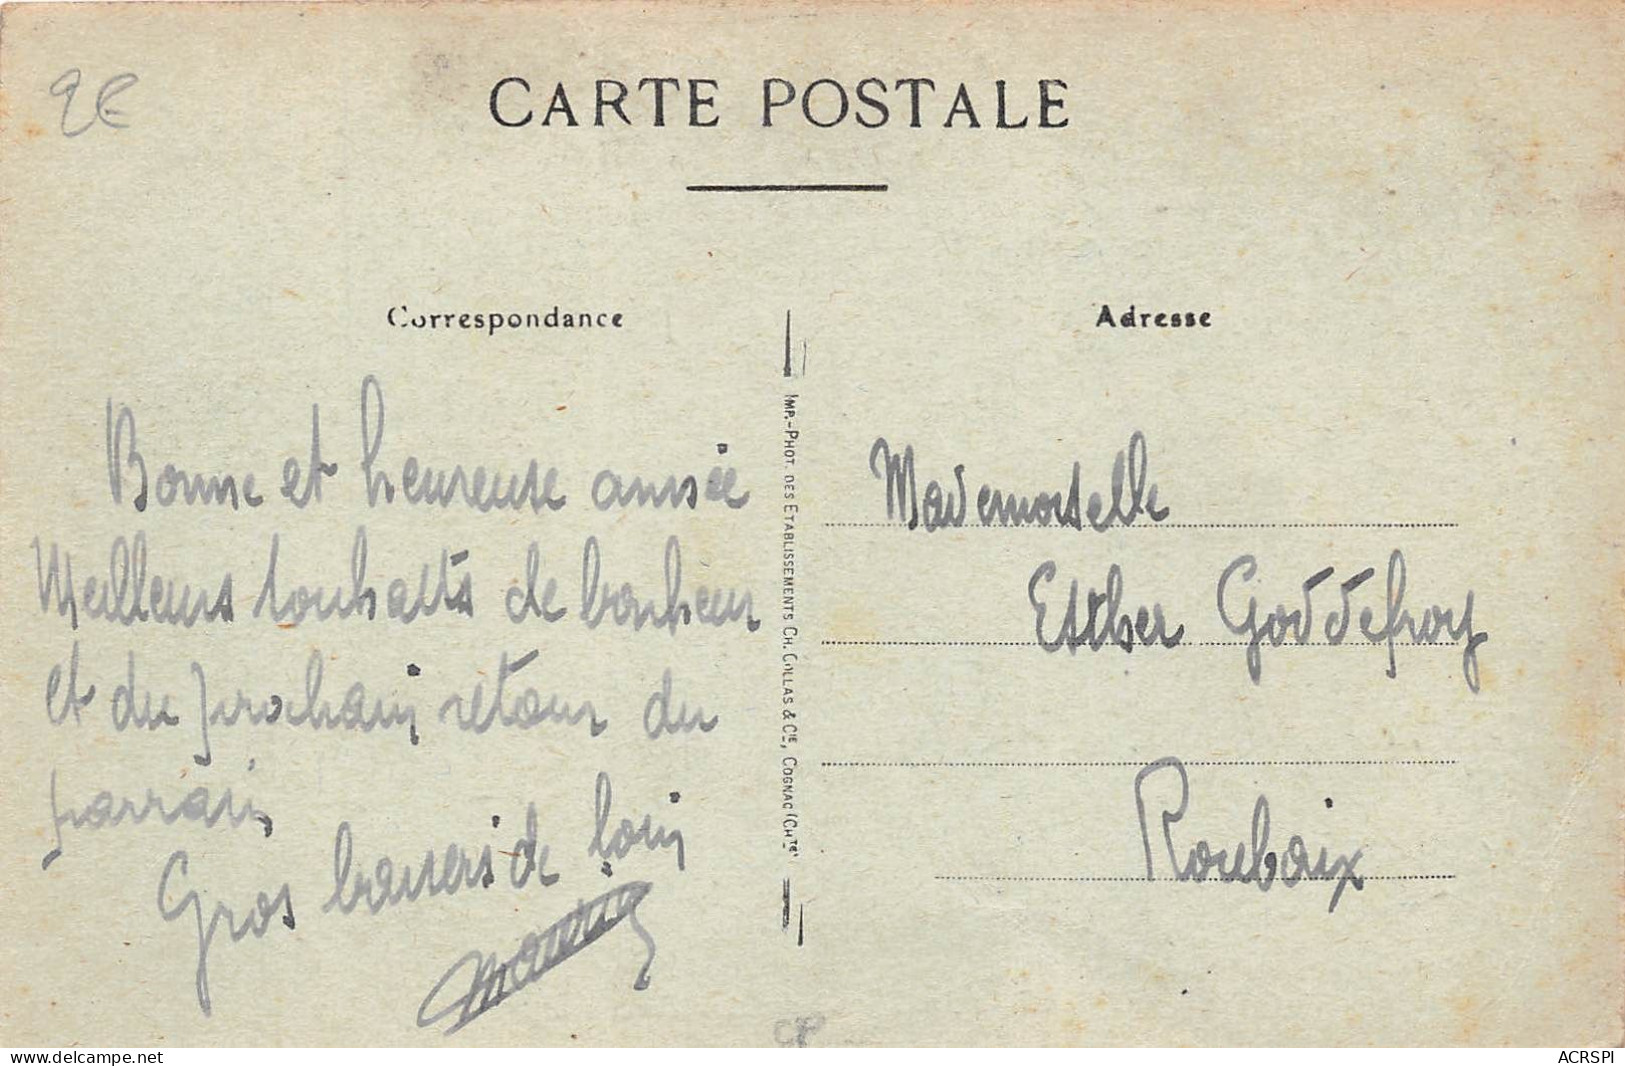 2€
CARTE POSTALE
Correspondance
Adresse
Bonne et heureuse année
Meilleurs souhaits de bonheur
et du prochain retour du
parrain
Gros baisers de loin
IMP.-PHOT. DES ETABLISSEMENTS CH. COLLAS & CIE, COGNAC (CHTE)
Mademoiselle
Esther Goddefroy
Roubaix
CP
delcampe.net
ACRSPI